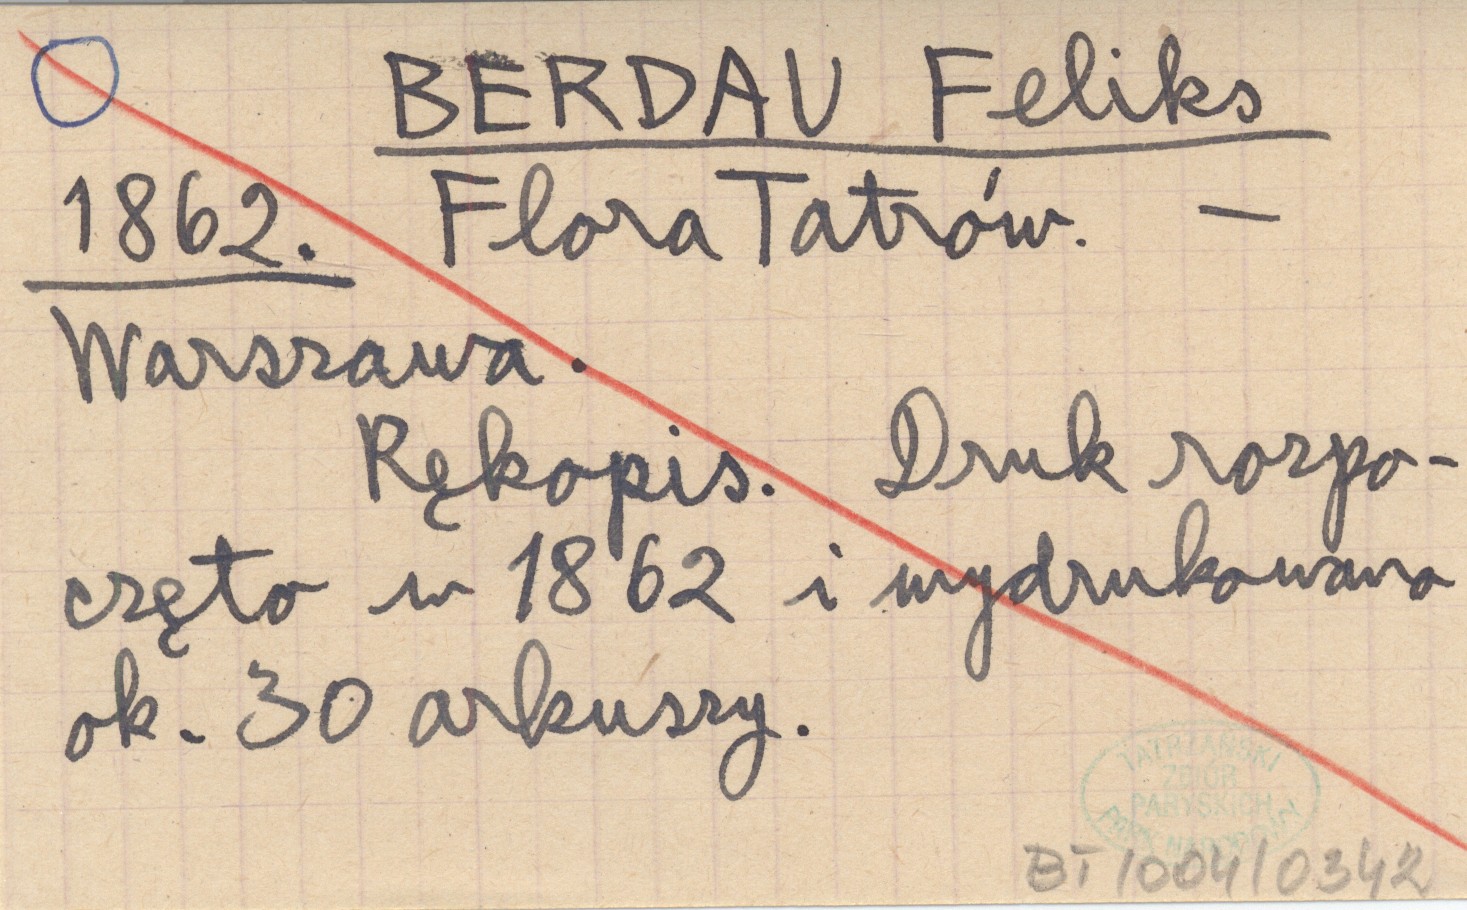 BERDAU Feliks
1862. Flora Tatrów. —
Warszawa.
Rękopis. Druk rozpo-
częto w 1862 i wydrukowano
ok. 30 arkuszy.
TATRZAŃSKI
ZBIÓR
PARYSKICH
PARK NARODOWY
BT/004/0342